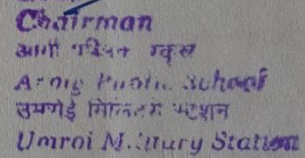 Chairman
आर्मी पब्लिक स्कूल
Army Public School
उमरोई मिलिटरी स्टेशन
Umroi Military Station